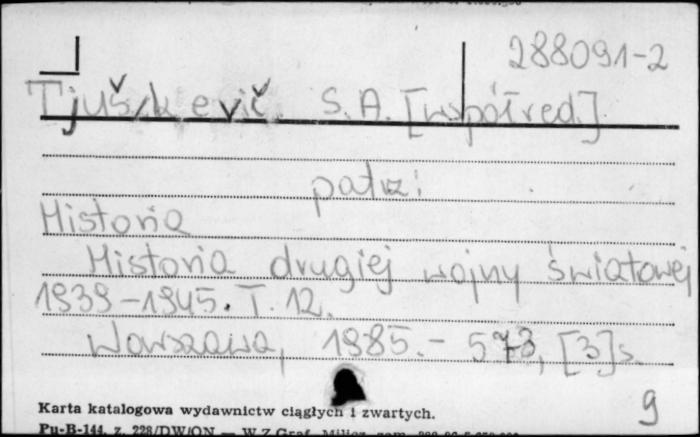 288091-2
Tjuškevič, S.A. [współred.]
patrz:
Historia
Historia drugiej wojny światowej
1939-1945. T. 12.
Warszawa, 1985. - 573, [3] s.
9
Karta katalogowa wydawnictw ciągłych i zwartych.
Pu-B-144, z. 228/DW/ON — W.Z.Graf. Milicz, zam.